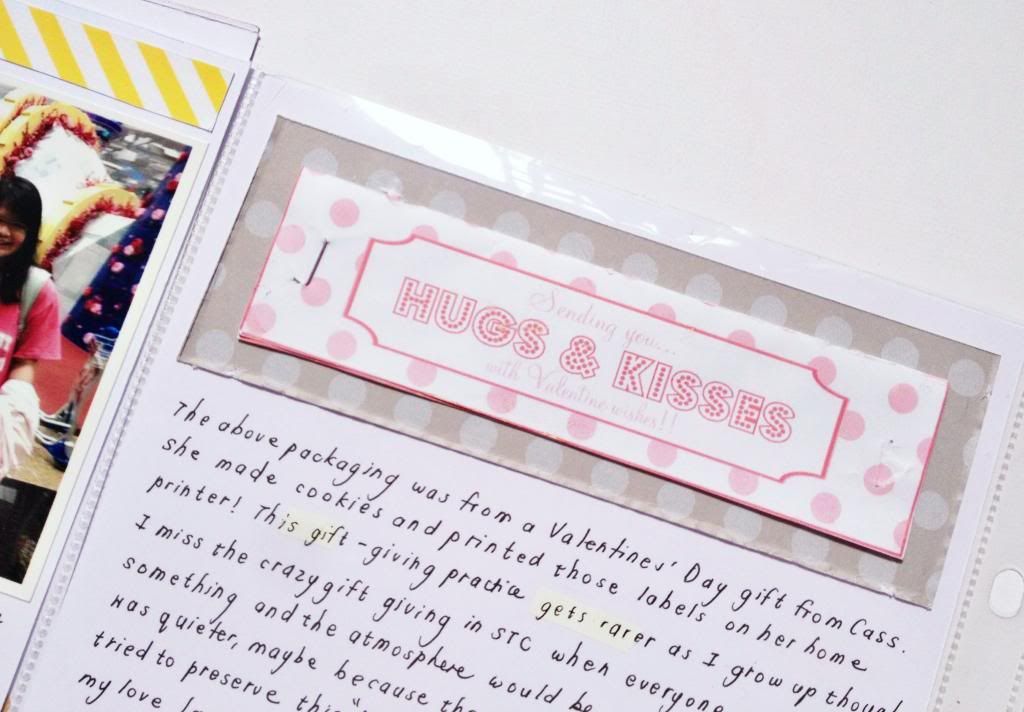 Sending you...
HUGS & KISSES
with Valentine wishes!!
The above packaging was from a Valentines' Day gift from Cass.
she made cookies and printed those labels on her home
printer! This gift-giving practice gets rarer as I grow up though
I miss the crazy gift giving in STC when everyone
something and the atmosphere would be
was quieter, maybe because the
tried to preserve this
my love